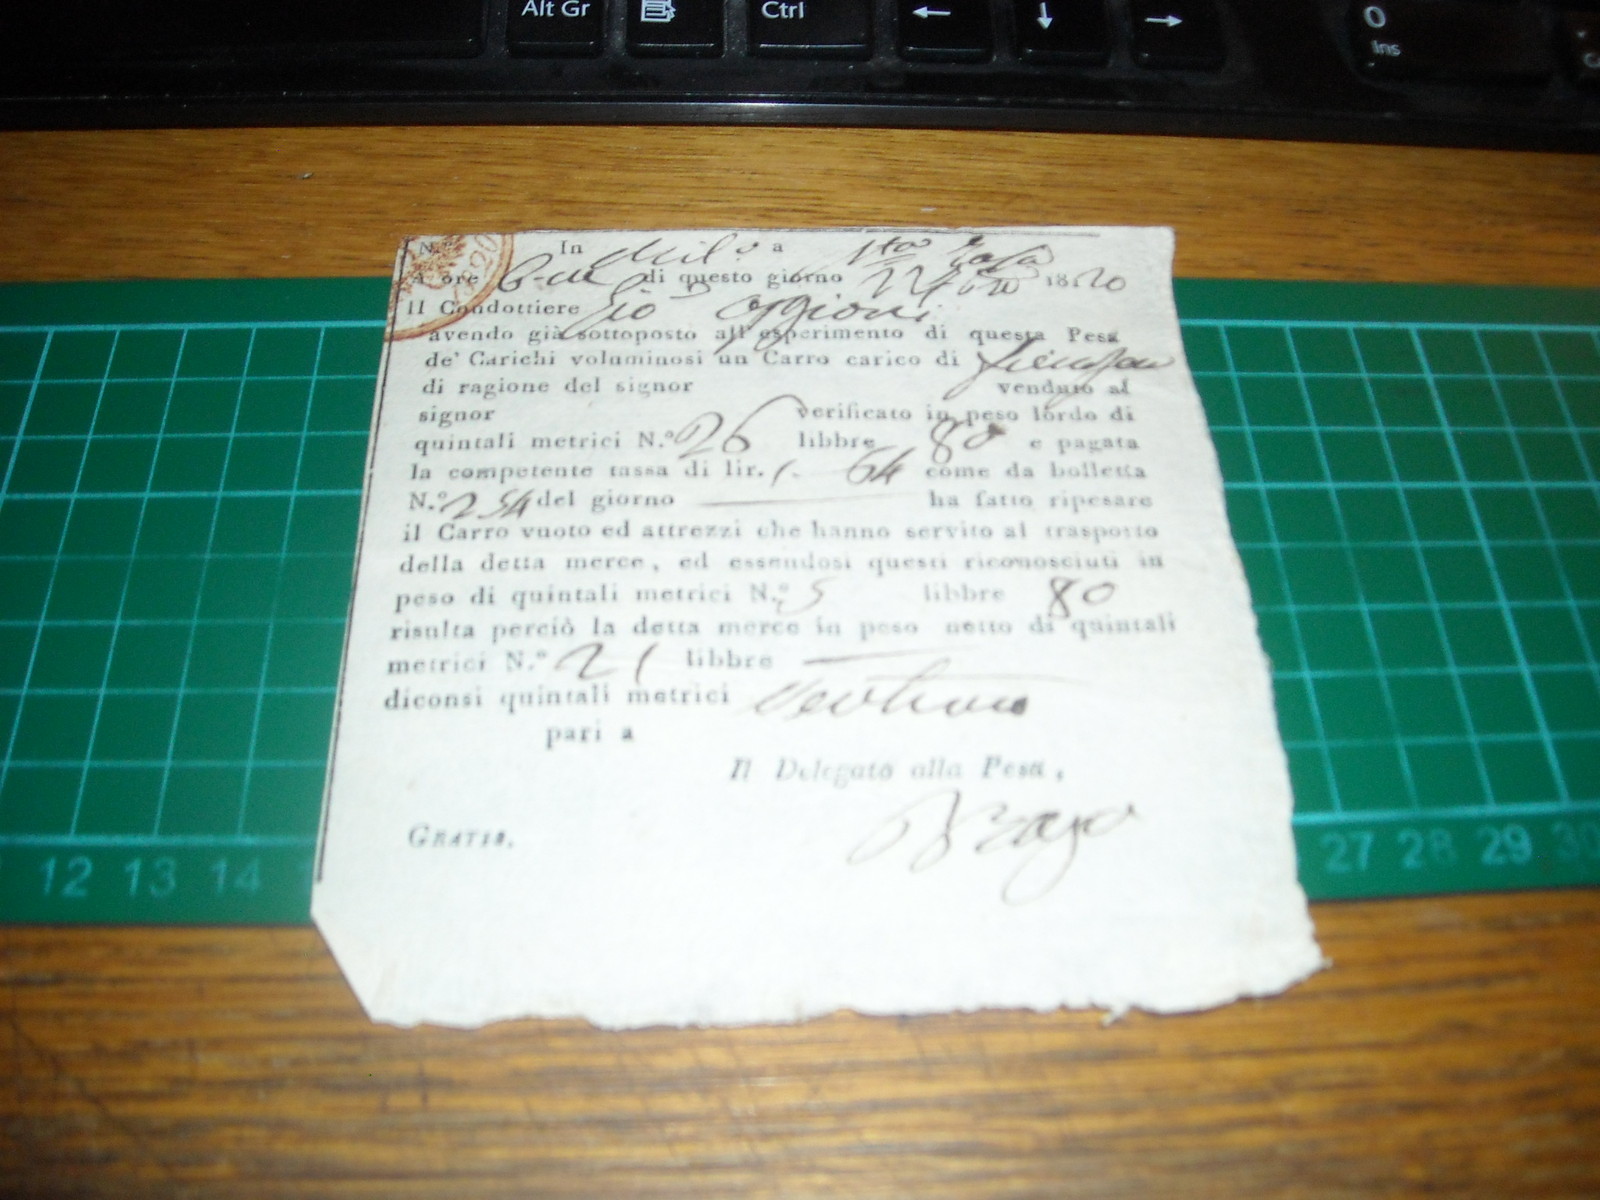 Alt Gr Ctrl ← ↓ → 0
Ins
N. In Mil.o a
ore di questo giorno 1820
il Condottiere Gio Oggioni
avendo già sottoposto all'esperimento di questa Pesa
de' Carichi voluminosi un Carro carico di
di ragione del signor venduto al
signor verificato in peso lordo di
quintali metrici N.º 26 libbre 80 e pagata
la competente tassa di lir. 1. 64 come da bolletta
N.º 254 del giorno ha fatto ripesare
il Carro vuoto ed attrezzi che hanno servito al trasporto
della detta merce, ed essendosi questi riconosciuti in
peso di quintali metrici N.º 5 libbre 80
risulta perciò la detta merce in peso netto di quintali
metrici N.º 21 libbre
diconsi quintali metrici Ventuno
pari a
Il Delegato alla Pesa,
GRATIS.
12 13 14 27 28 29 30